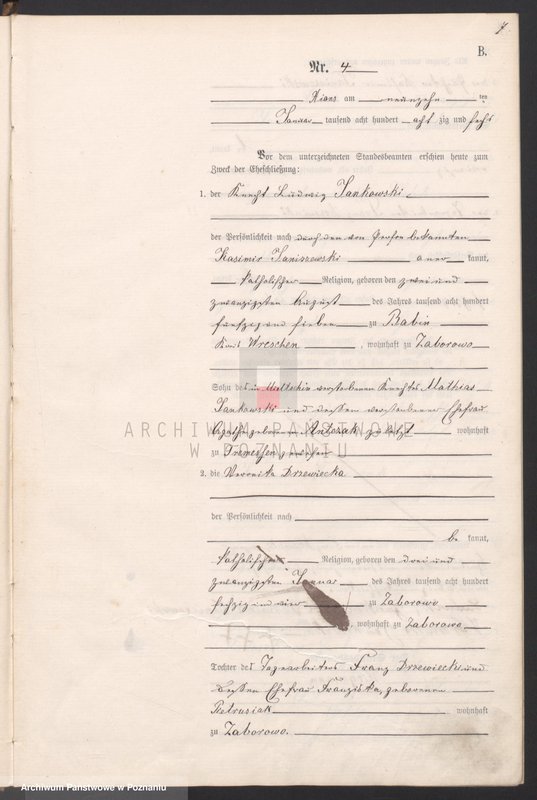 7
B.
Nr. 4
am neunzehn ten
Januar tausend acht hundert acht zig und sechs
Vor dem unterzeichneten Standesbeamten erschien heute zum
Zweck der Eheschließung:
1. der Knecht Ludwig Jankowski
der Persönlichkeit nach durch den von Person bekannten
Kasimir Janiszewski aner kannt,
katholischer Religion, geboren den zwei und
zwanzigsten August des Jahres tausend acht hundert
fünfzig und sieben zu Babin
Kreis Wreschen, wohnhaft zu Zaborowo
Sohn des in verstorbenen Knechts Mathias
Jankowski und dessen verstorbener Ehefrau
geborenen Antczak zuletzt wohnhaft
zu gewesen
2. die Veronika Drzewiecka
der Persönlichkeit nach
be kannt,
katholischer Religion, geboren den drei und
zwanzigsten Januar des Jahres tausend acht hundert
sechzig und vier zu Zaborowo
, wohnhaft zu Zaborowo
Tochter des Tagearbeiters Franz Drzewiecki und
dessen Ehefrau Franziska, geborenen
Pietrusiak wohnhaft
zu Zaborowo.
ARCHIWUM PAŃSTWOWE
W POZNANIU
Archiwum Państwowe w Poznaniu